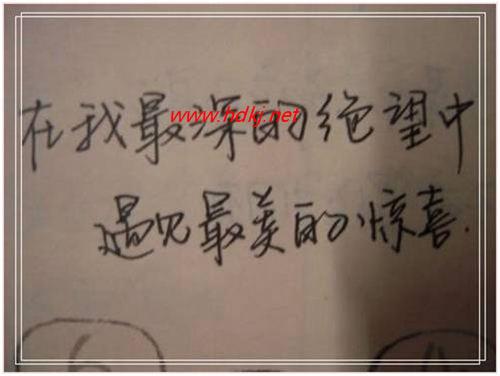 在我最深的绝望中
www.hdkj.net
遇见最美的惊喜.
6